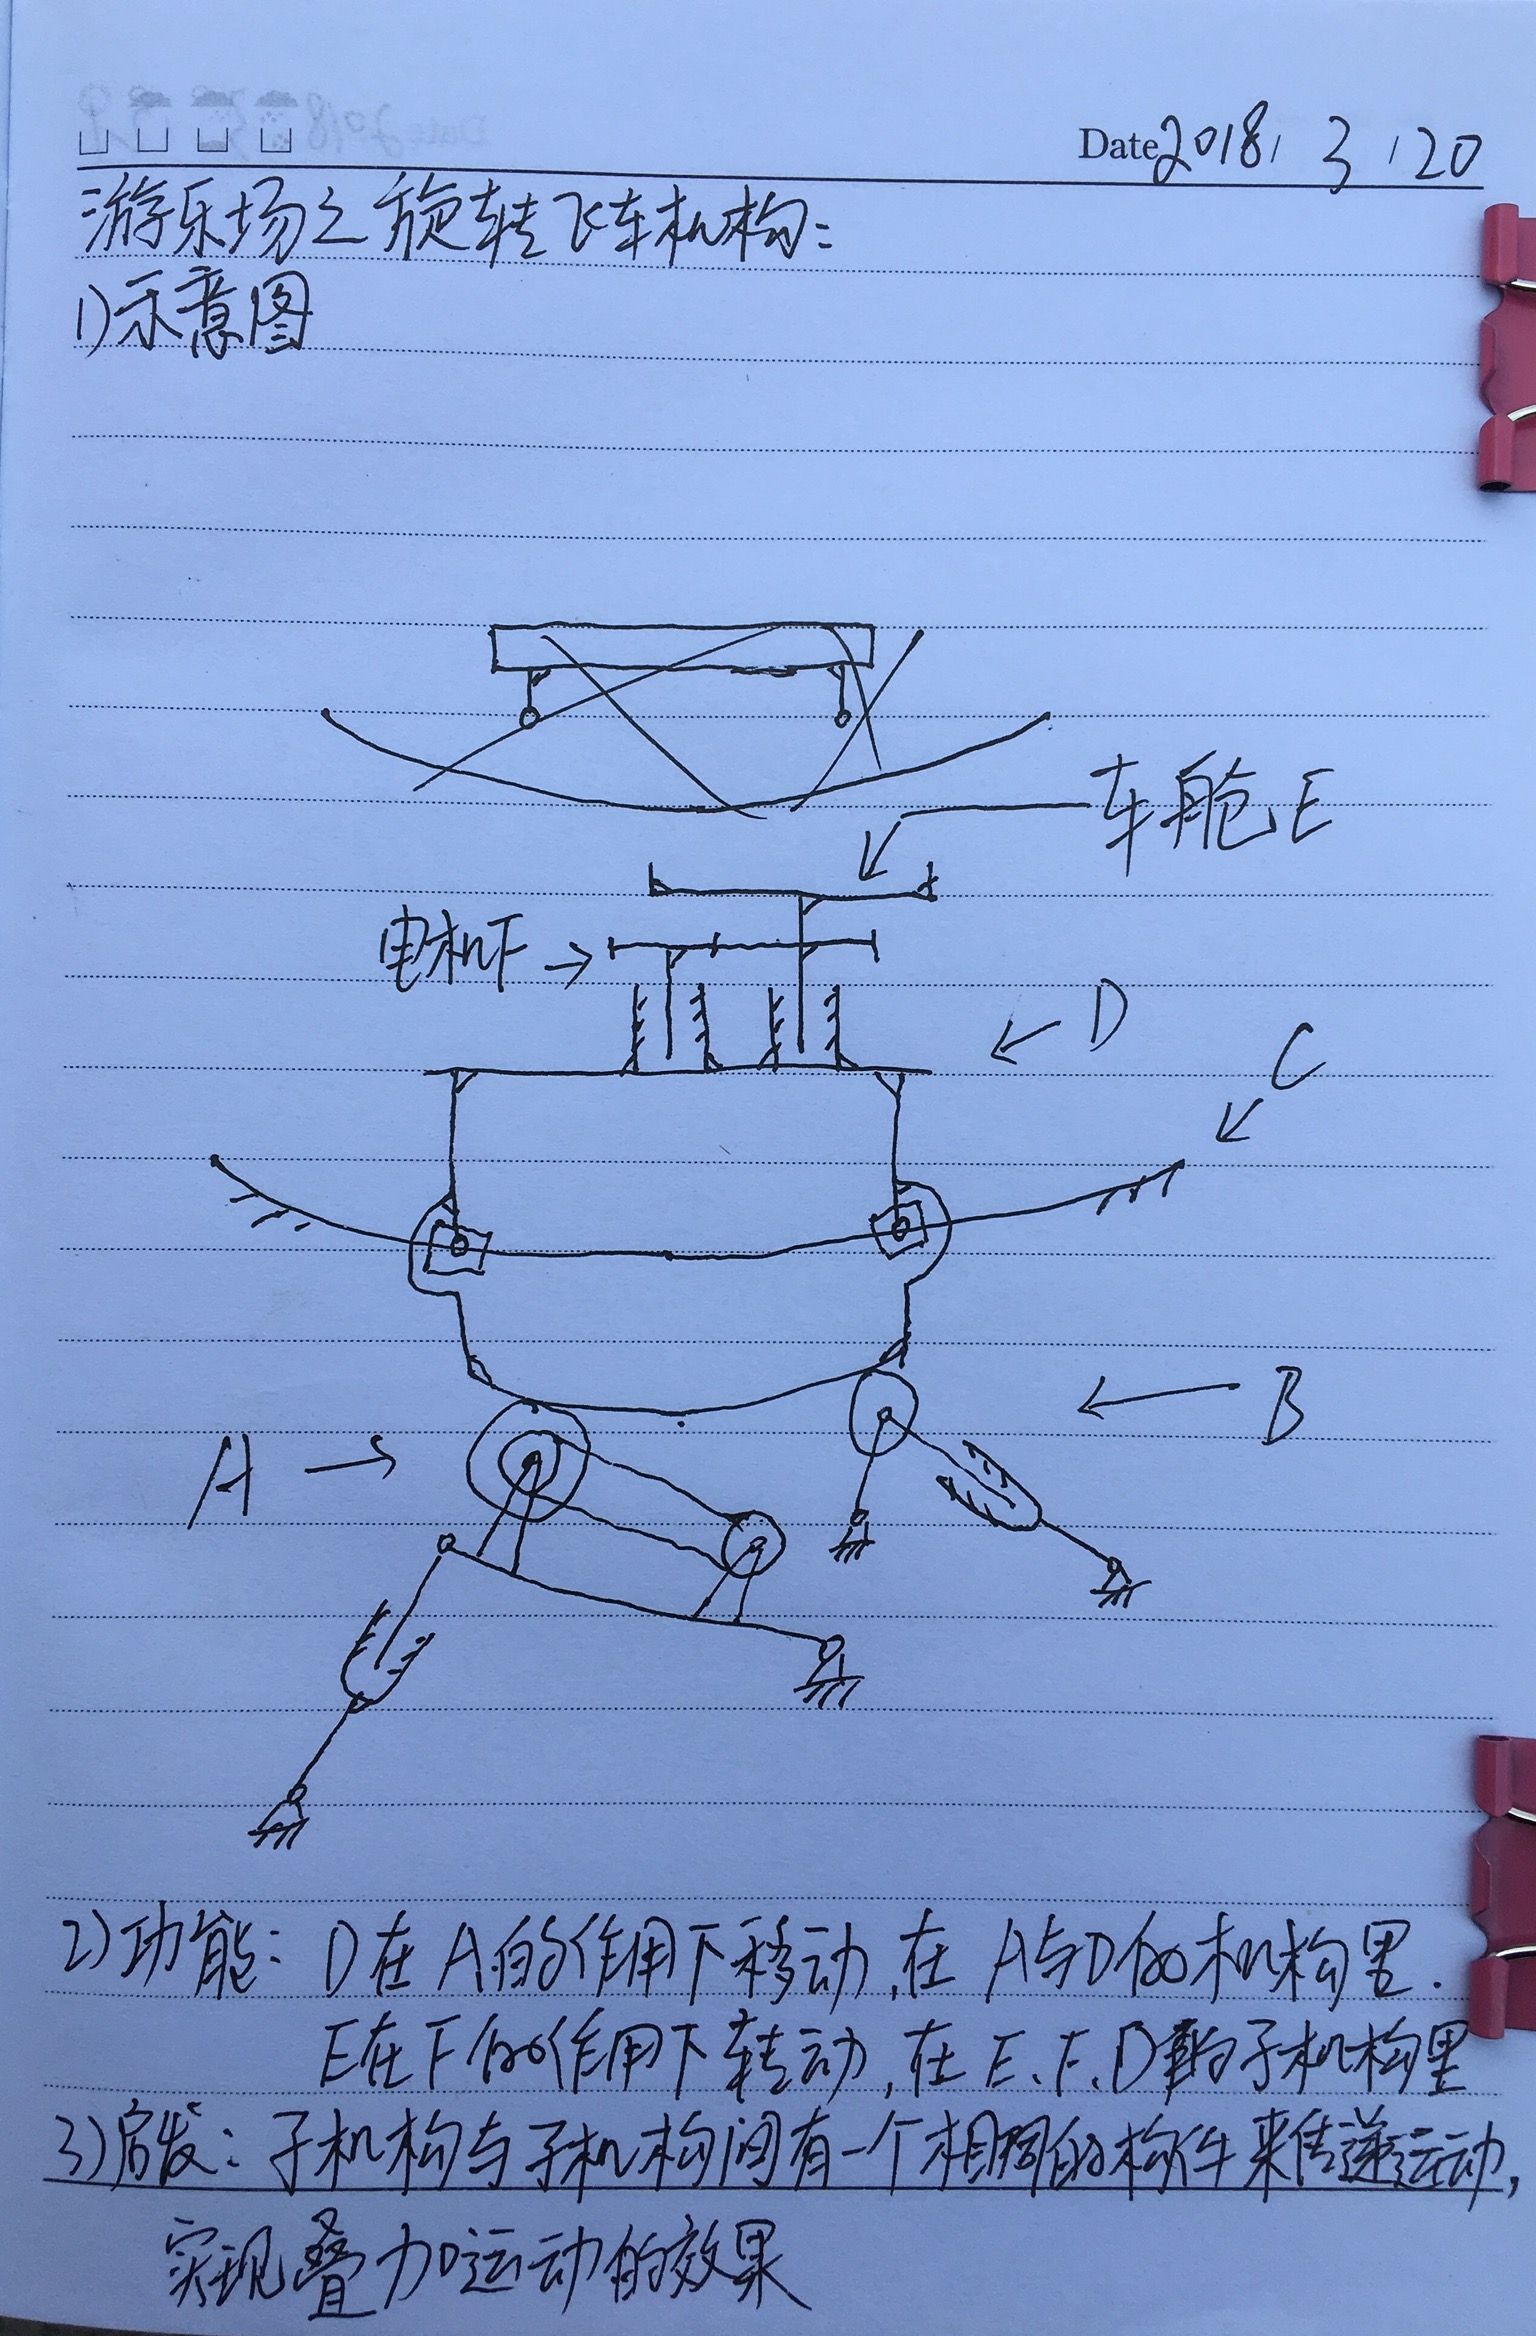 Date 2018 / 3 / 20
游乐场之旋转飞车机构:
1)示意图
车舱E
电机F
D
C
B
A
2)功能: D在A的作用下移动,在A与D的机构里.
E在F的作用下转动,在E.F.D的子机构里
3)启发: 子机构与子机构间有一个相同的构件来传递运动,
实现叠加运动的效果